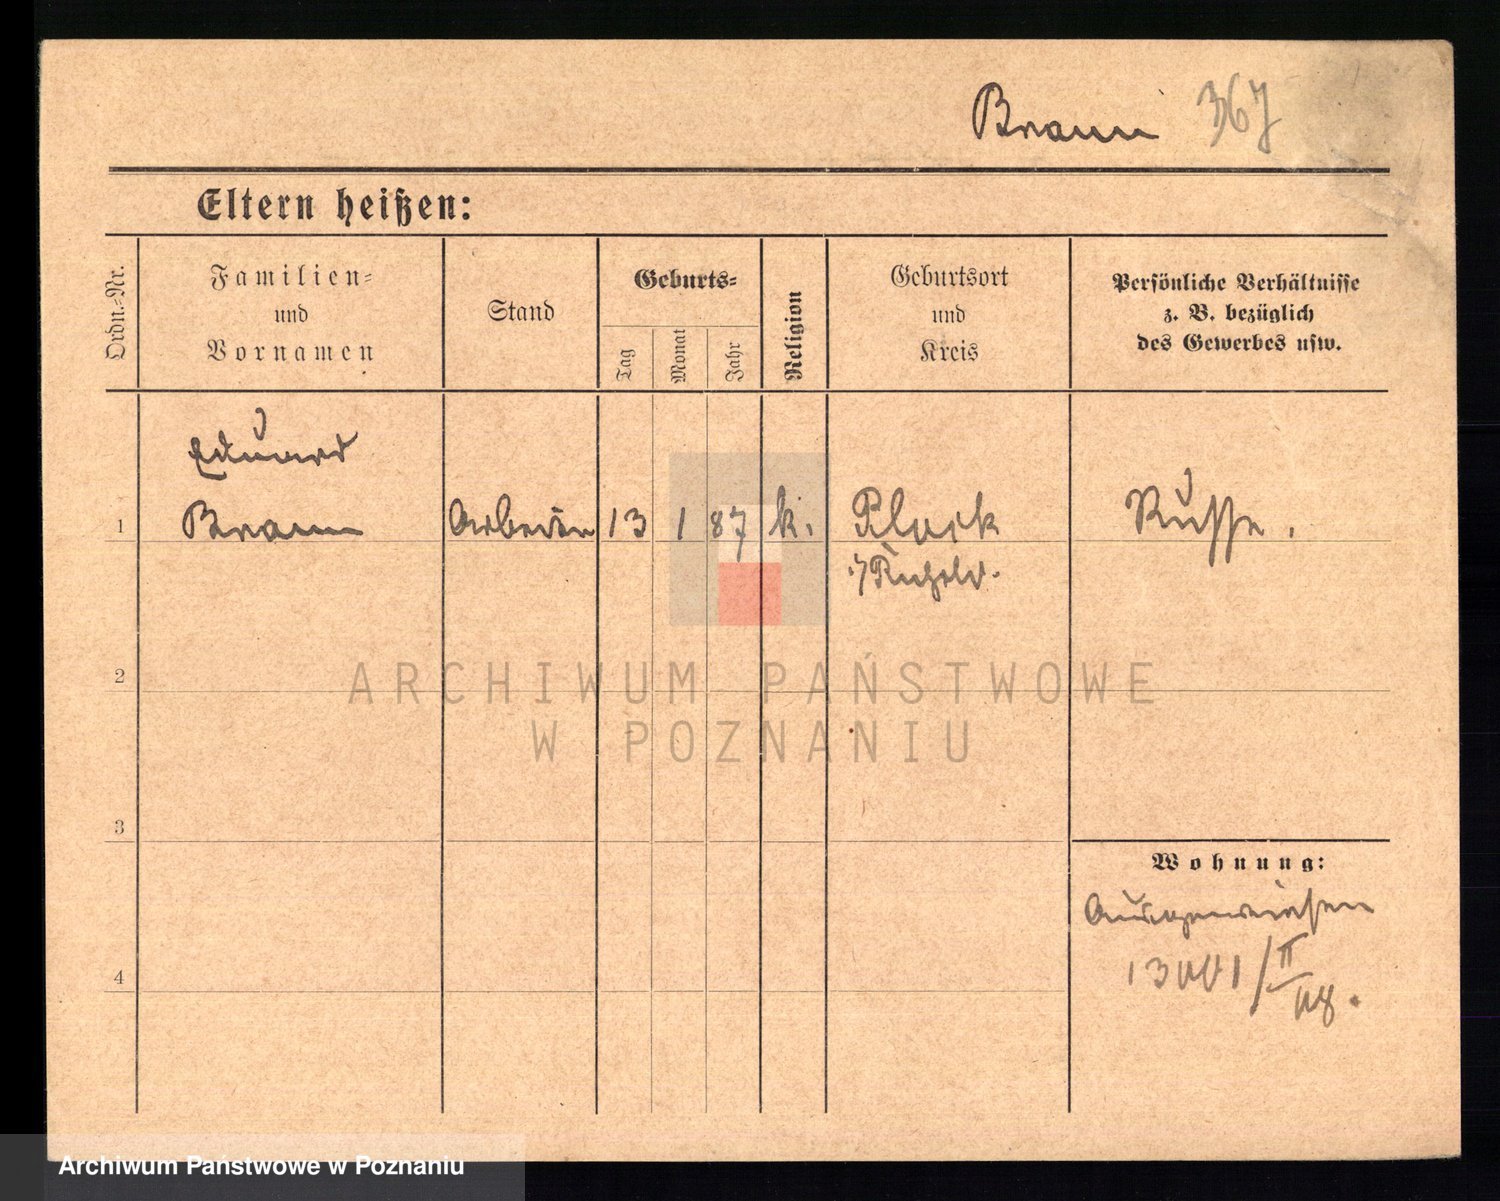 Braun 367
Eltern heißen:
Ordn.-Nr.
Familien-
und
Vornamen
Stand
Geburts-
Tag
Monat
Jahr
Religion
Geburtsort
und
Kreis
Persönliche Verhältnisse
z. B. bezüglich
des Gewerbes usw.
Eduard
1 Braun Arbeiter 13 1 87 k. Plock Russe.
i/Rußld.
2
ARCHIWUM PAŃSTWOWE
W POZNANIU
3
Wohnung:
Ausgewiesen
4
II
08.
Archiwum Państwowe w Poznaniu